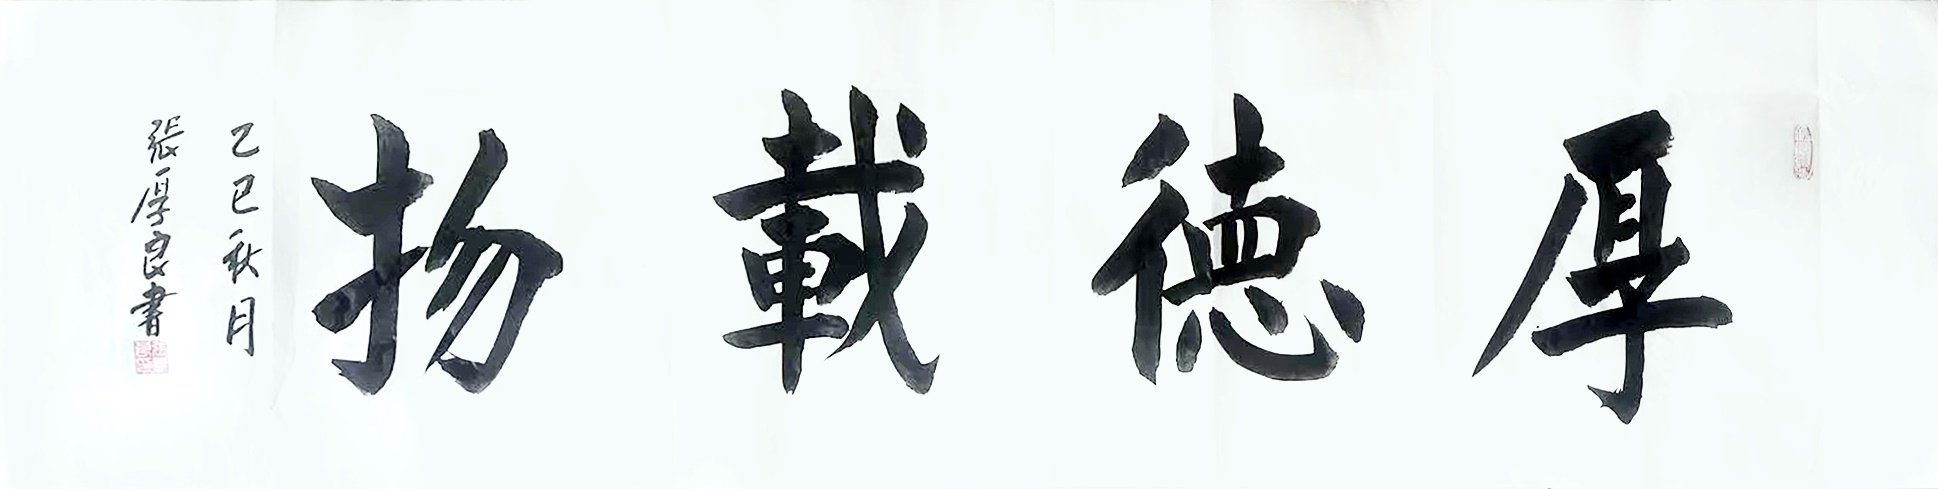 厚德載物
乙巳秋月
張厚良書